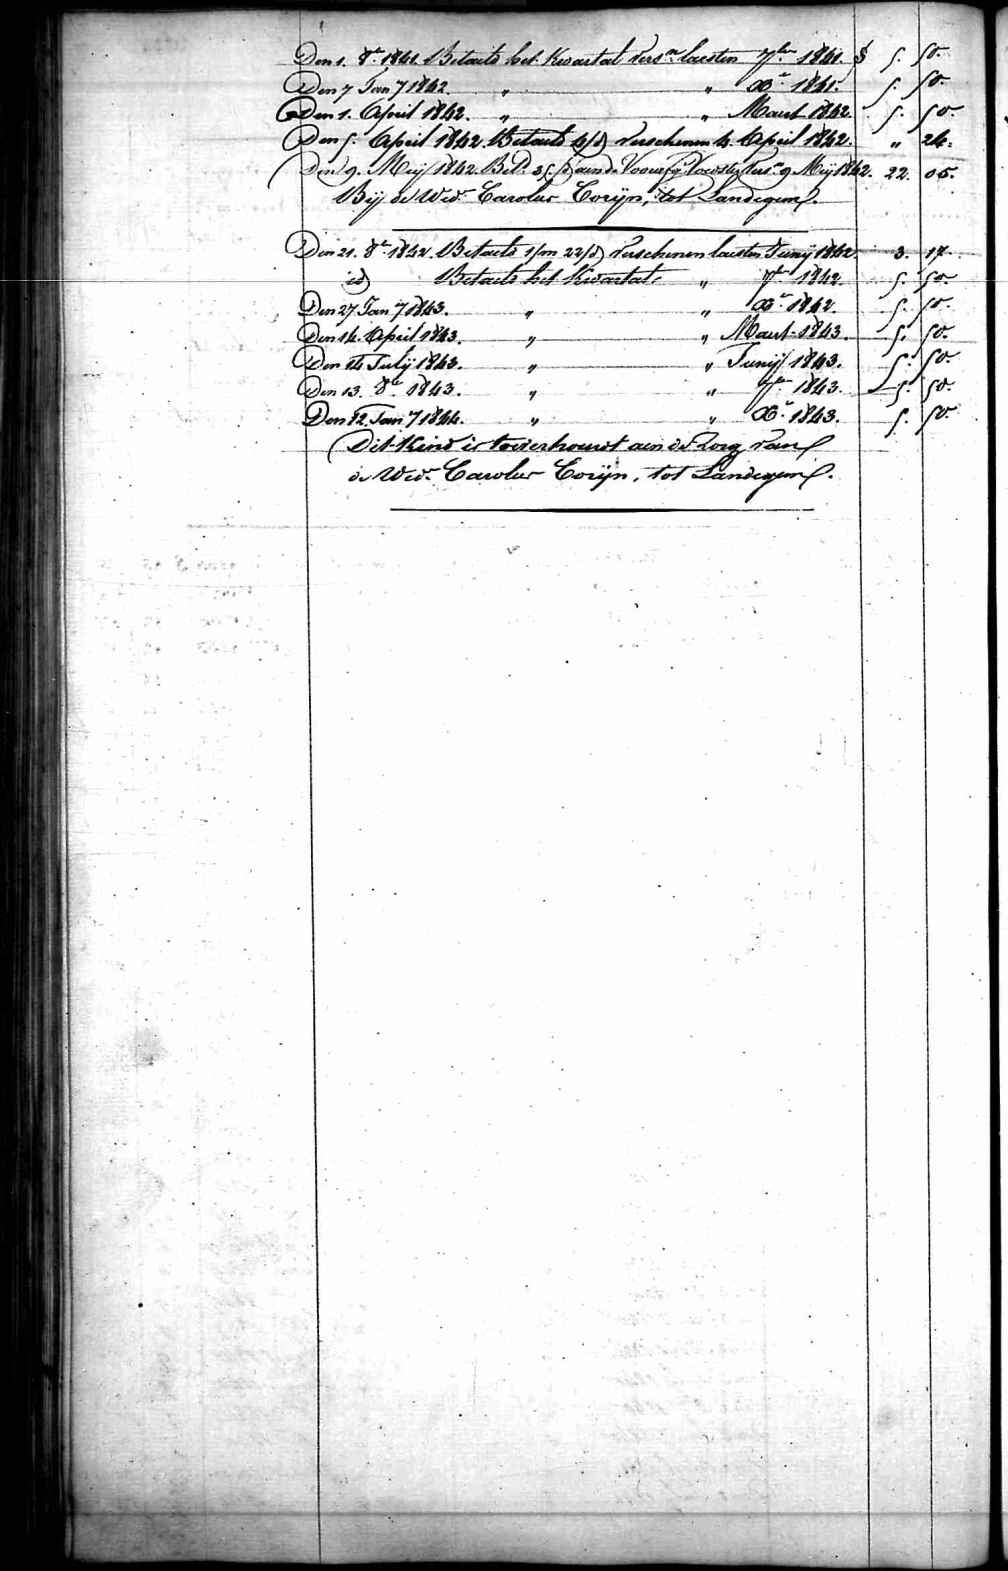 Den 1. 8br 1841. Betaelt het Kwartael versn laesten 7ber 1841. 5. 50.
Den 7 Jan 7 1842. " " Xr 1841. 5. 50.
Den 1. April 1842. " " Maert 1842. 5. 50.
Den 5. April 1842. Betaelt 4/d verschenen 4. April 1842. " 24.
Den 9. Meij 1842. Bet. 35/d aen de Voedster versn 9 Meij 1842. 22. 05.
Bij de Wed. Carolus Corijn, tot Landegem.
Den 21. 8br 1842. Betaelt 1/m 22/d verschenen laesten Junij 1842. 3. 17.
id Betaelt het Kwartael " 7br 1842. 5. 50.
Den 27 Jan 7 1843. " " Xr 1842. 5. 50.
Den 14. April 1843. " " Maert 1843. 5. 50.
Den 14 Julij 1843. " " Junij 1843. 5. 50.
Den 13. 8br 1843. " " 7br 1843. 5. 50.
Den 12 Jan 7 1844. " " Xr 1843. 5. 50.
Dit Kind is toevertrouwt aen de Zorg van
de Wed. Carolus Corijn, tot Landegem.